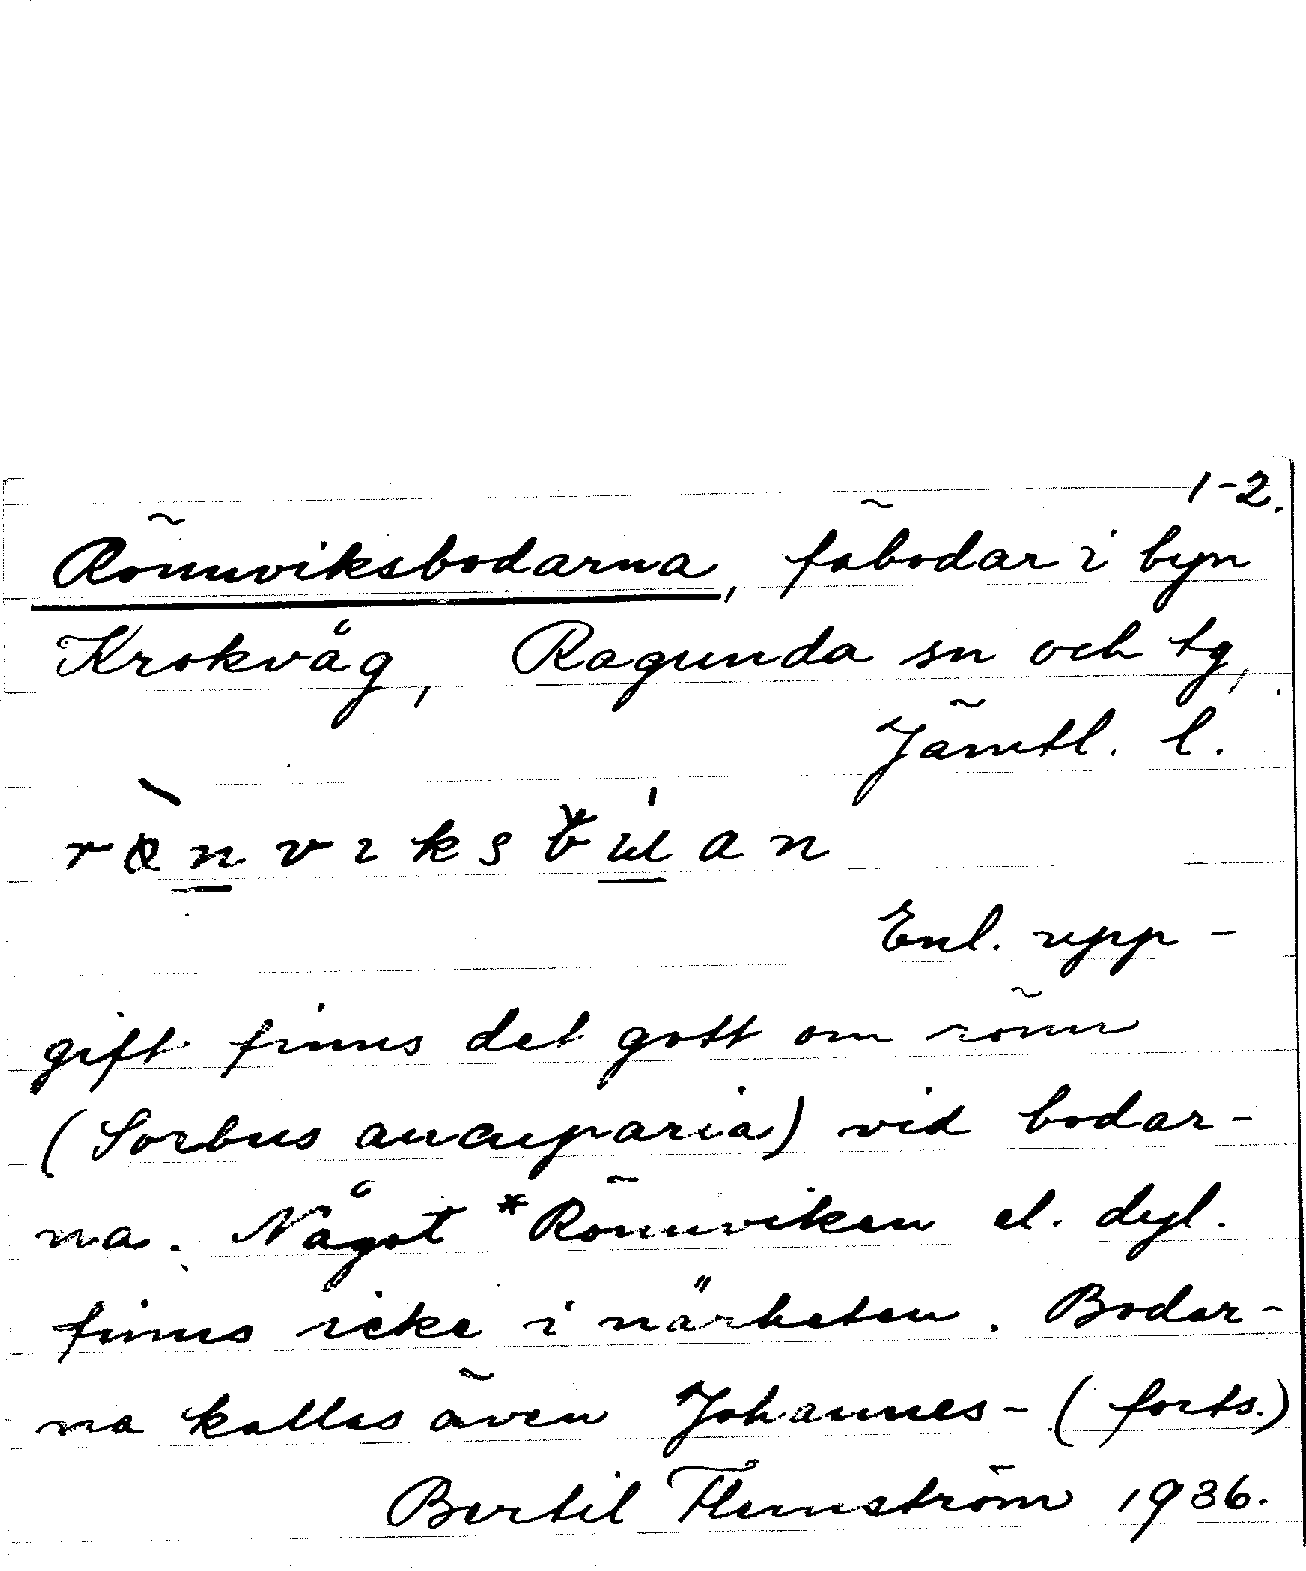 1-2.
Rönnviksbodarna, fäbodar i byn
Krokvåg, Ragunda sn och tg,
Jämtl. l.
Enl. upp-
gift finns det gott om rönn
(Sorbus aucuparia) vid bodar-
na. Något *Rönnviken el. dyl.
finns icke i närheten. Bodar-
na kallas även Johannes- (forts.)
Bertil Flemström 1936.